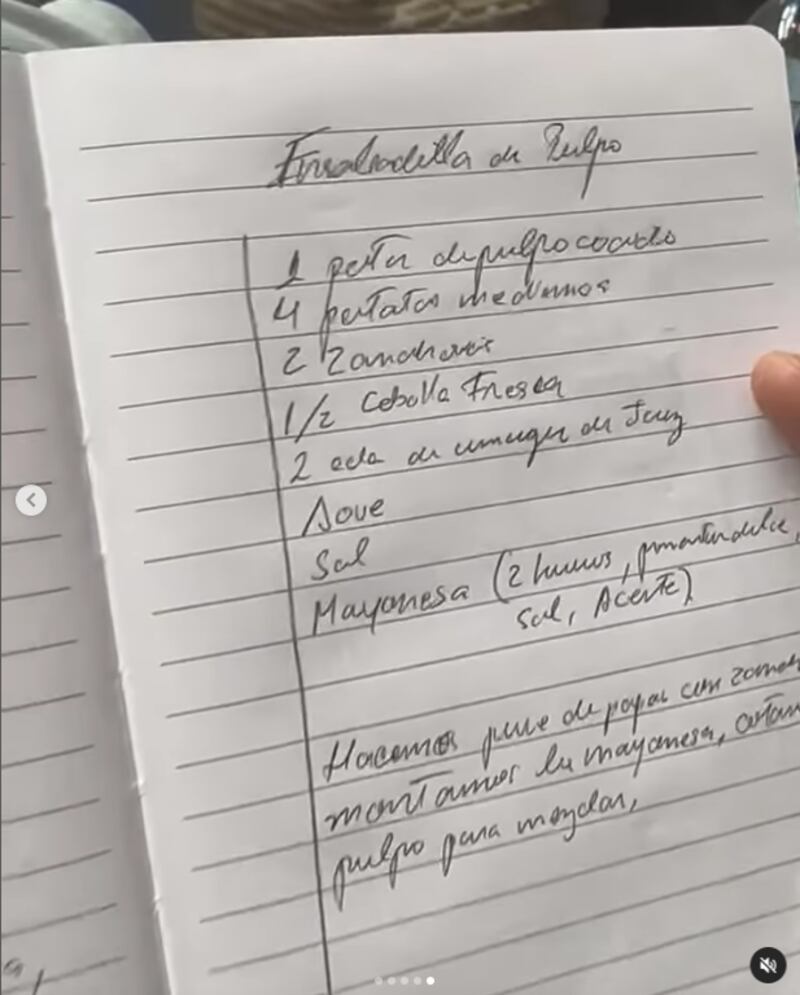 Ensaladilla de Pulpo
1 pata de pulpo cocido
4 patatas medianas
2 zanahorias
1/2 Cebolla Fresca
2 cda de vinagre de Jerez
Aove
Sal
Mayonesa (2 huevos, pimenton dulce,
Sal, Aceite)
Hacemos pure de papas con
montamos la mayonesa,
pulpo para mezclar,